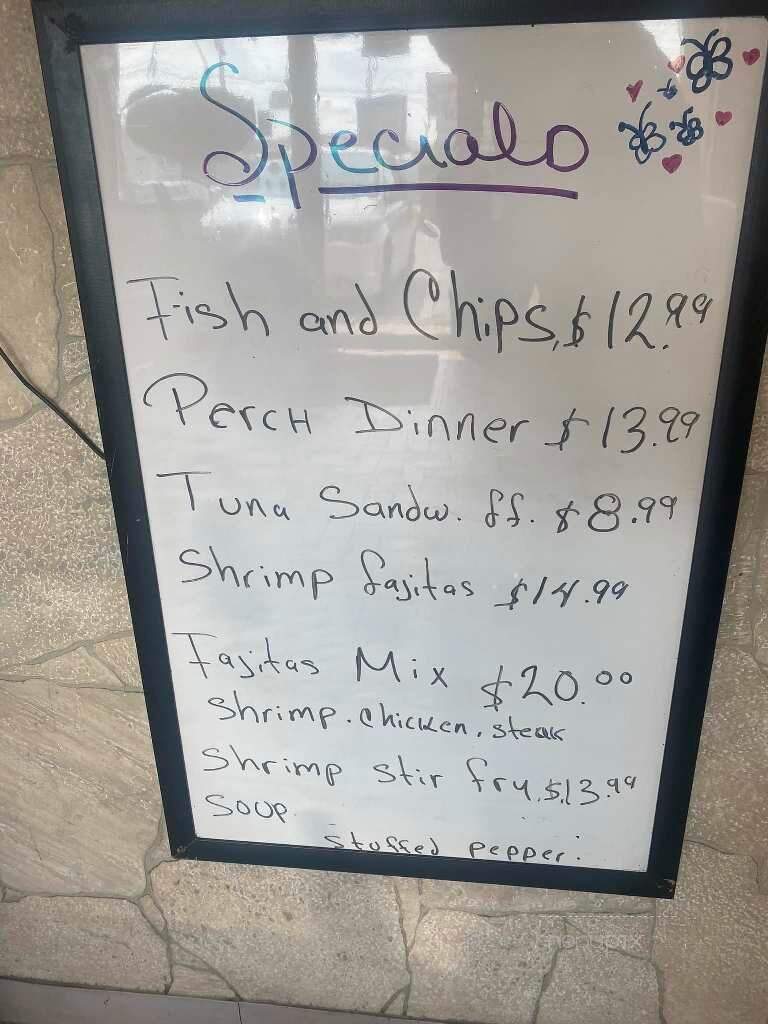 Specials
Fish and Chips, $12.99
Perch Dinner $13.99
Tuna Sandw. ff. $8.99
Shrimp fajitas $14.99
Fajitas Mix $20.00
Shrimp. chicken, steak
Shrimp stir fry, $13.99
Soup.
Stuffed pepper.